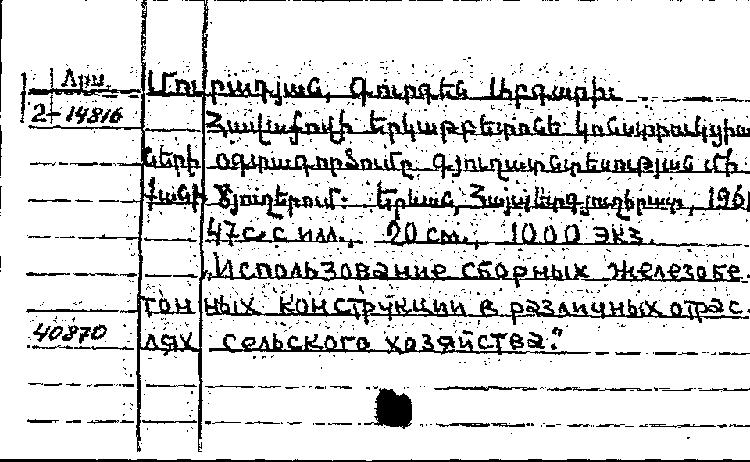 Մուրադյան, Գուրգեն Աբգարի
2-14816
Հավաքովի երկաթբետոնե կոնստրուկցիա
ների օգտագործումը գյուղատնտեսության մի
ճյուղերում. Երևան, Հայպետգյուղհրատ, 1961
47 с. с илл., 20 см., 1000 экз.
„Использование сборных железобе
тонных конструкции в различных отрас
40870 лях сельского хозяйства."